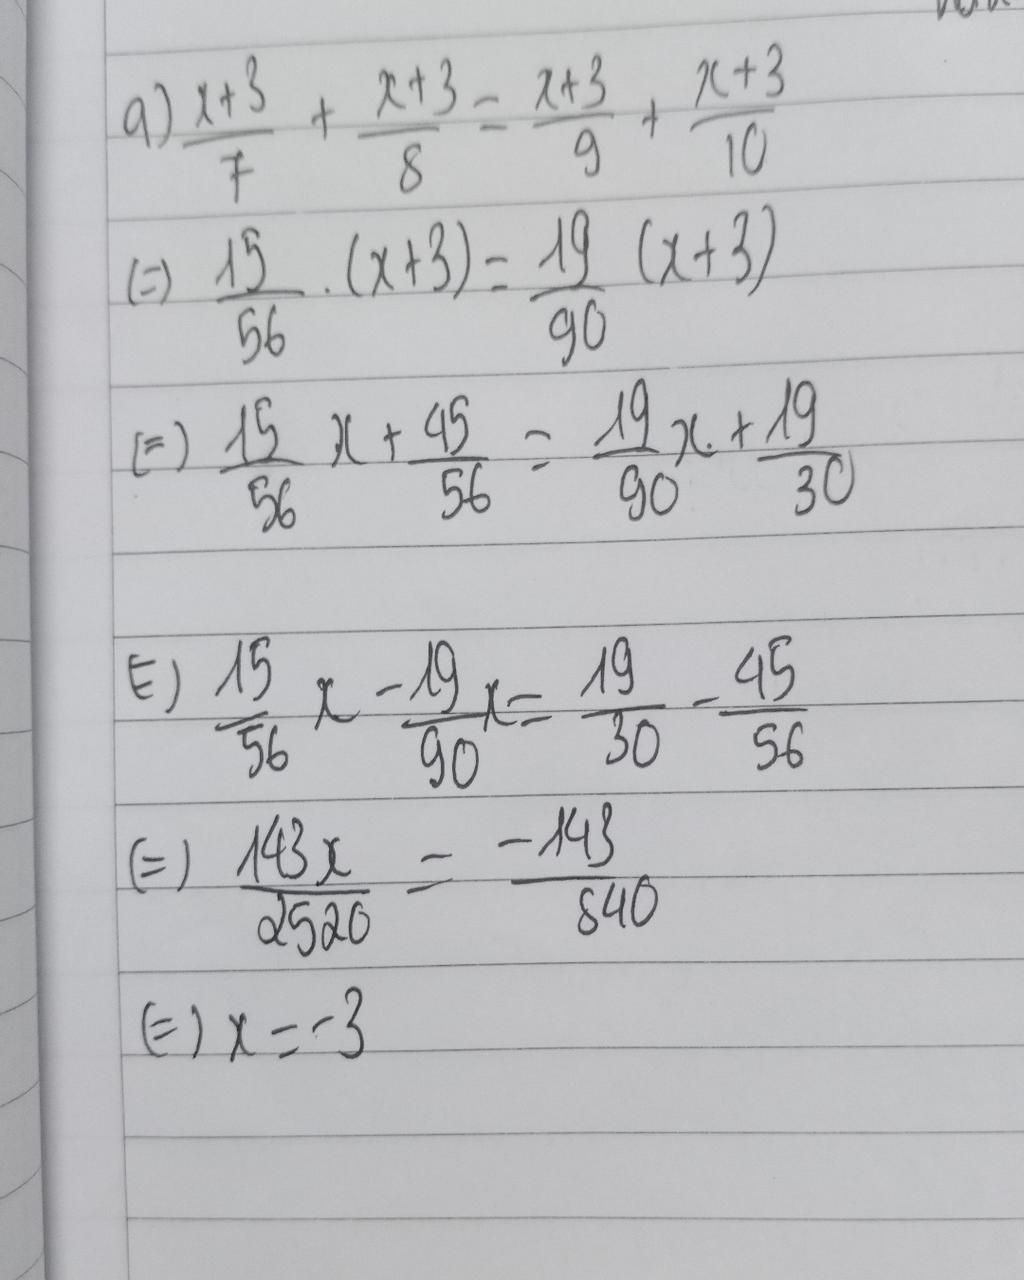 a) x+3/7 + x+3/8 = x+3/9 + x+3/10
(=) 15/56 . (x+3) = 19/90 (x+3)
(=) 15/56 x + 45/56 = 19/90 x + 19/30
(=) 15/56 x - 19/90 x = 19/30 - 45/56
(=) 143x/2520 = -143/840
(=) x = -3